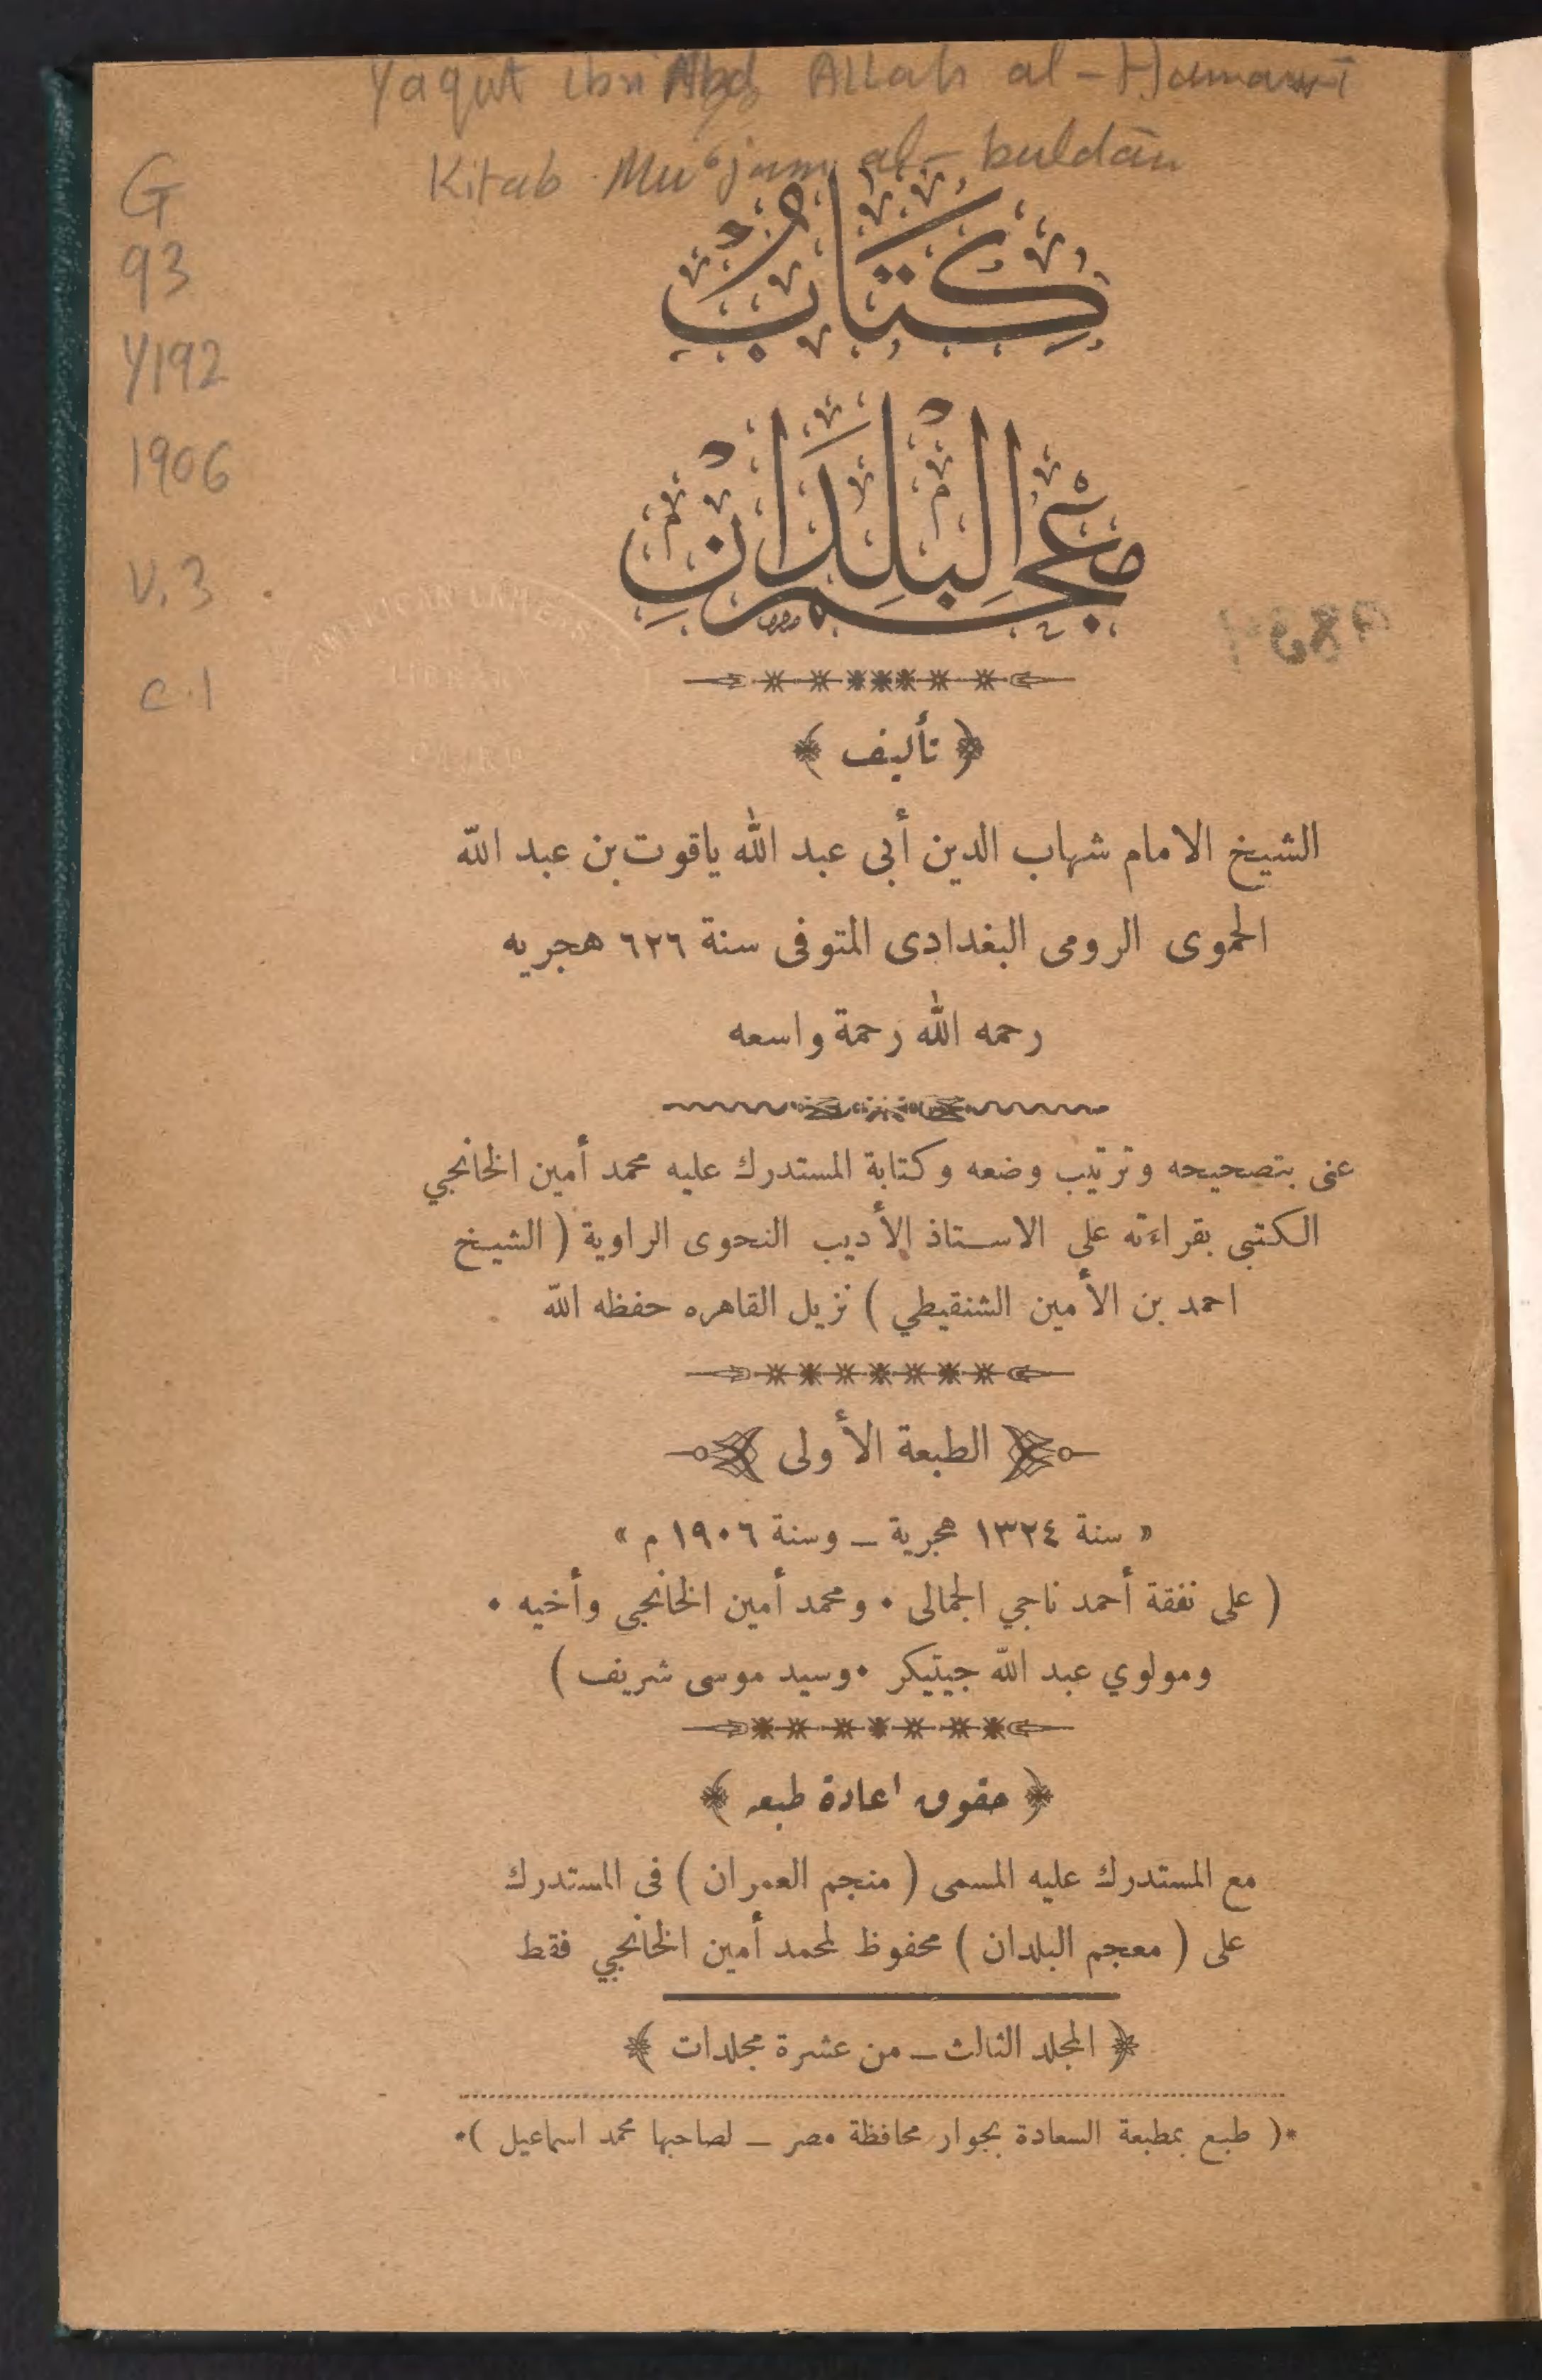 Yaqut ibn Abd Allah al-Hamawī
Kitab Mu'jam al-buldān
G
93
Y192
1906
V. 3
c.1
كِتَابُ
مُعْجَمِ الْبُلْدَانِ
AMERICAN UNIVERSITY
LIBRARY
CAIRO
﴿ تأليف ﴾
الشيخ الامام شهاب الدين أبى عبد الله ياقوت بن عبد الله
الحموى الرومى البغدادى المتوفى سنة ٦٢٦ هجريه
رحمه الله رحمة واسعه
عنى بتصحيحه وترتيب وضعه وكتابة المستدرك عليه محمد أمين الخانجي
الكتبى بقراءته على الاستاذ الأديب النحوى الراوية ( الشيخ
احمد بن الأمين الشنقيطي ) نزيل القاهره حفظه الله
الطبعة الأولى
« سنة ١٣٢٤ هجرية – وسنة ١٩٠٦ م »
( على نفقة أحمد ناجي الجمالى • ومحمد أمين الخانجي وأخيه •
ومولوي عبد الله جيتيكر • وسيد موسى شريف )
﴿ حقوق اعادة طبعه ﴾
مع المستدرك عليه المسمى ( منجم العمران ) فى المستدرك
على ( معجم البلدان ) محفوظ لمحمد أمين الخانجي فقط
﴿ المجلد الثالث – من عشرة مجلدات ﴾
*( طبع بمطبعة السعادة بجوار محافظة مصر – لصاحبها محمد اسماعيل )*